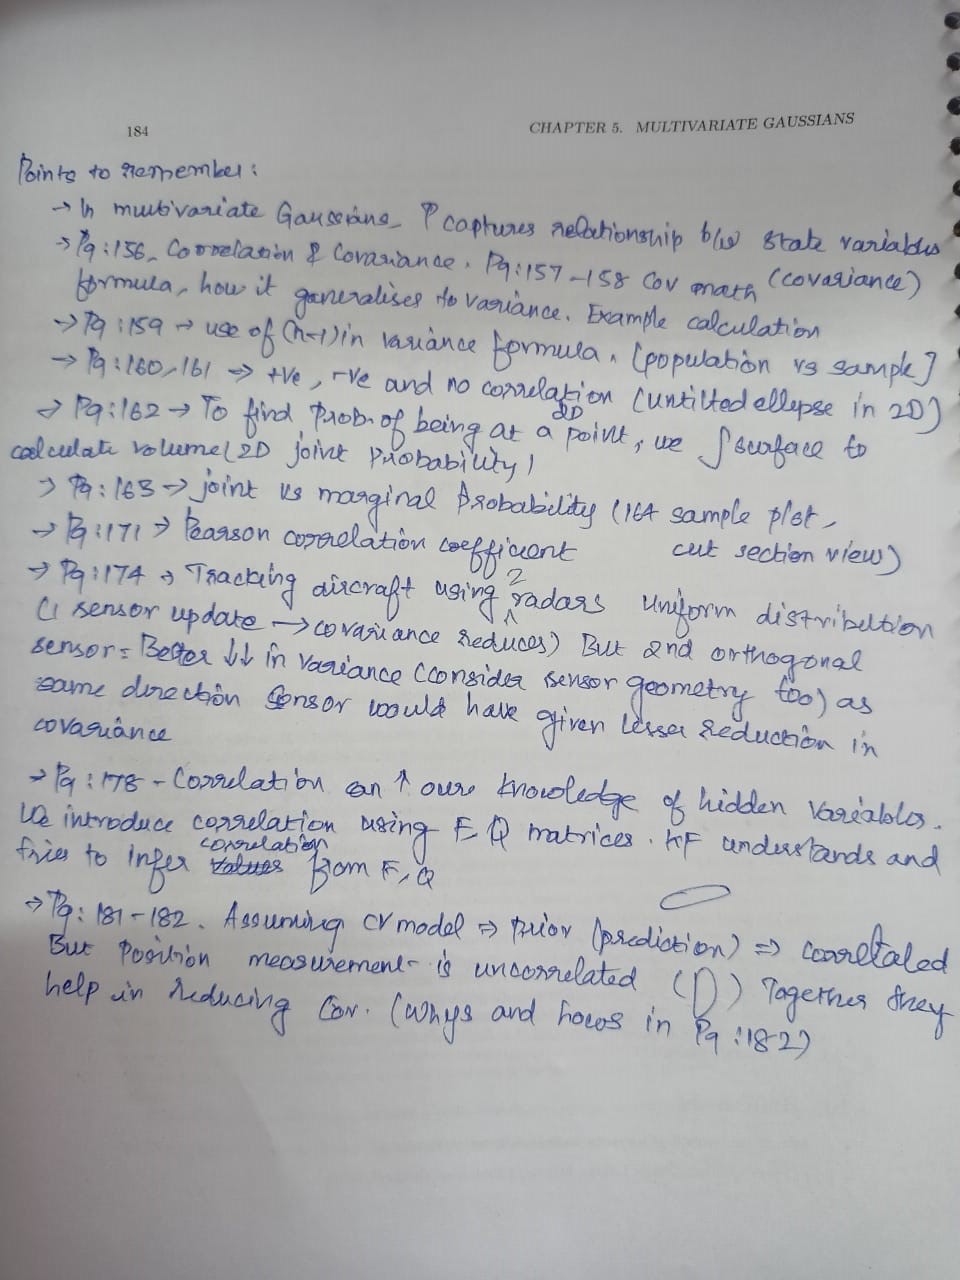 184
CHAPTER 5. MULTIVARIATE GAUSSIANS
Points to remember:
→ In multivariate Gaussians, P captures relationship b/w state variables
(covariance)
→ Pg:156, Correlation & Covariance. Pg:157-158 Cov math
formula, how it generalises to variance. Example calculation
→ Pg:159 → use of (n-1) in variance formula. [population vs sample]
→ Pg:160,161 → +ve, -ve and no correlation (untilted ellipse in 2D)
→ Pg:162 → To find prob. of being at a 2D point, we ∫ surface to
calculate volume (2D joint probability)
→ Pg:163 → joint vs marginal probability (164 sample plot,
cut section view)
→ Pg:171 → Pearson correlation coefficient
→ Pg:174 → Tracking aircraft using 2 radars uniform distribution
(1 sensor update → covariance reduces) But 2nd orthogonal
sensor = Better ↓↓ in variance (consider sensor geometry too) as
same direction sensor would have given lesser reduction in
covariance
→ Pg:178 - Correlation can ↑ our knowledge of hidden variables.
We introduce correlation using F, Q matrices. KF understands and
tries to infer values correlation from F, Q
→ Pg:181-182. Assuming CV model ⇒ prior (prediction) ⇒ correltaled
But Position measurement is uncorrelated Together they
help in reducing Cov. (whys and hows in Pg:182)